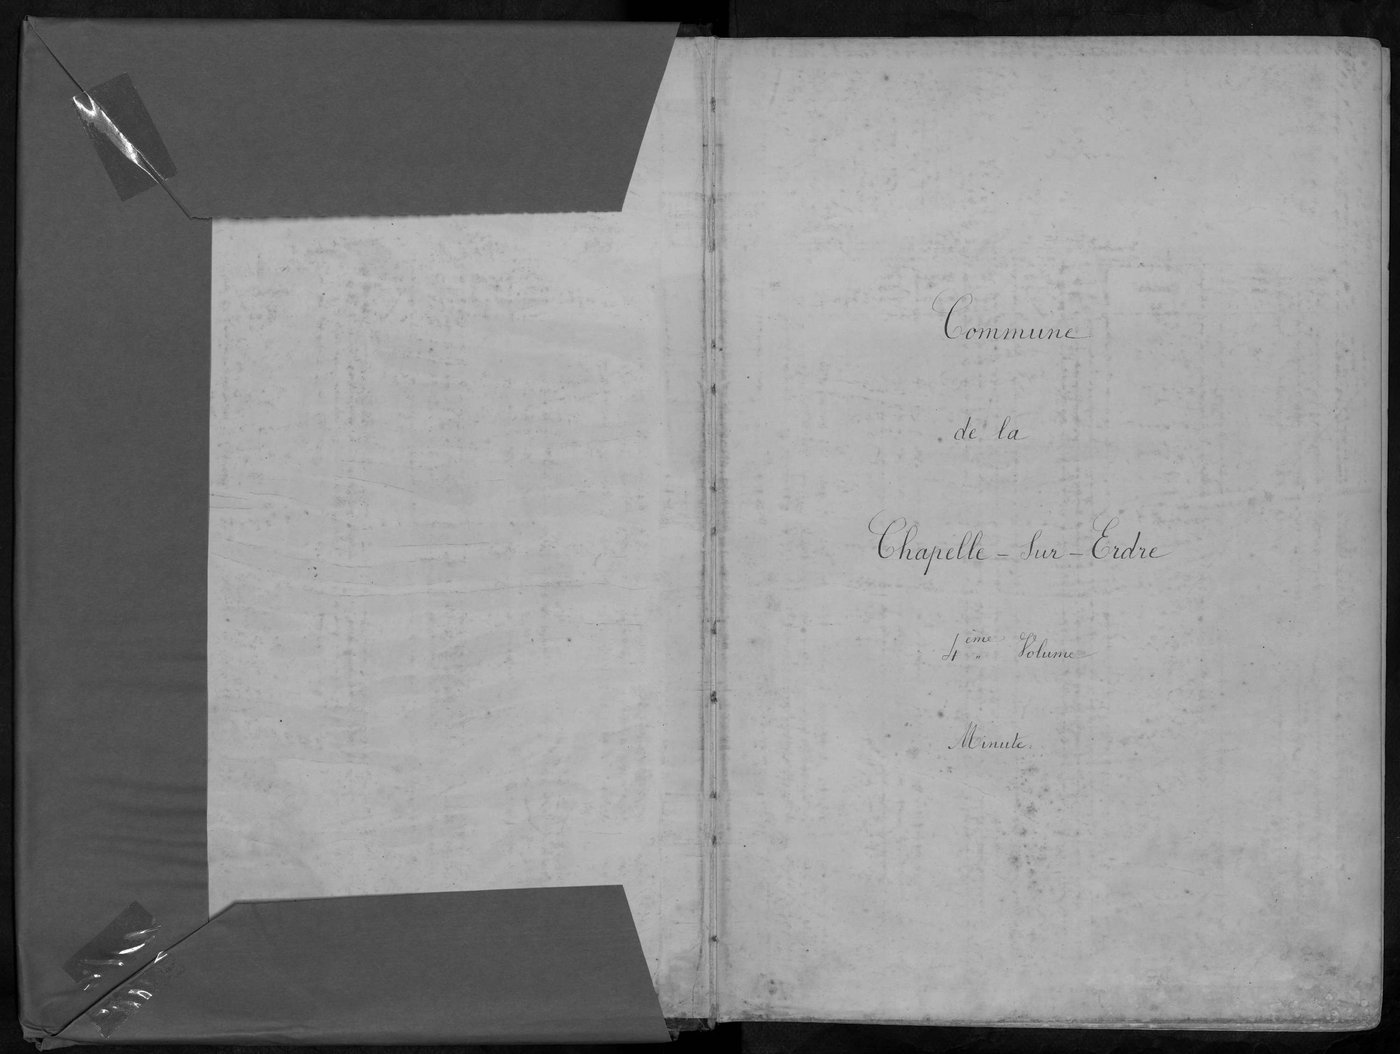 Commune
de la
Chapelle - sur - Erdre
4ème Volume
Minute.